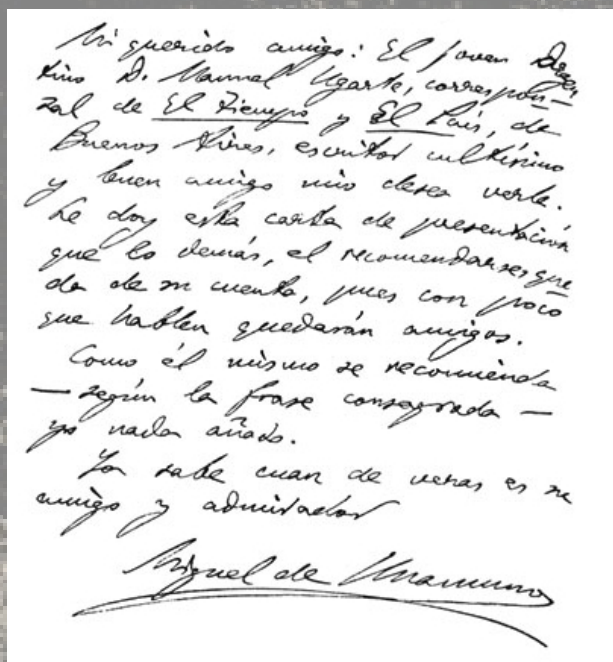 Mi querido amigo: El joven Argen
tino D. Manuel Ugarte, correspon-
sal de El Tiempo y El País, de
Buenos Aires, escritor cultísimo
y buen amigo mio desea verle.
Le doy esta carta de presentación
que lo demás, el recomendarse, que
da de su cuenta, pues con poco
que hablen quedarán amigos.
Como él mismo se recomienda
— según la frase consagrada —
yo nada añado.
Ya sabe cuan de veras es su
amigo y admirador
Miguel de Unamuno